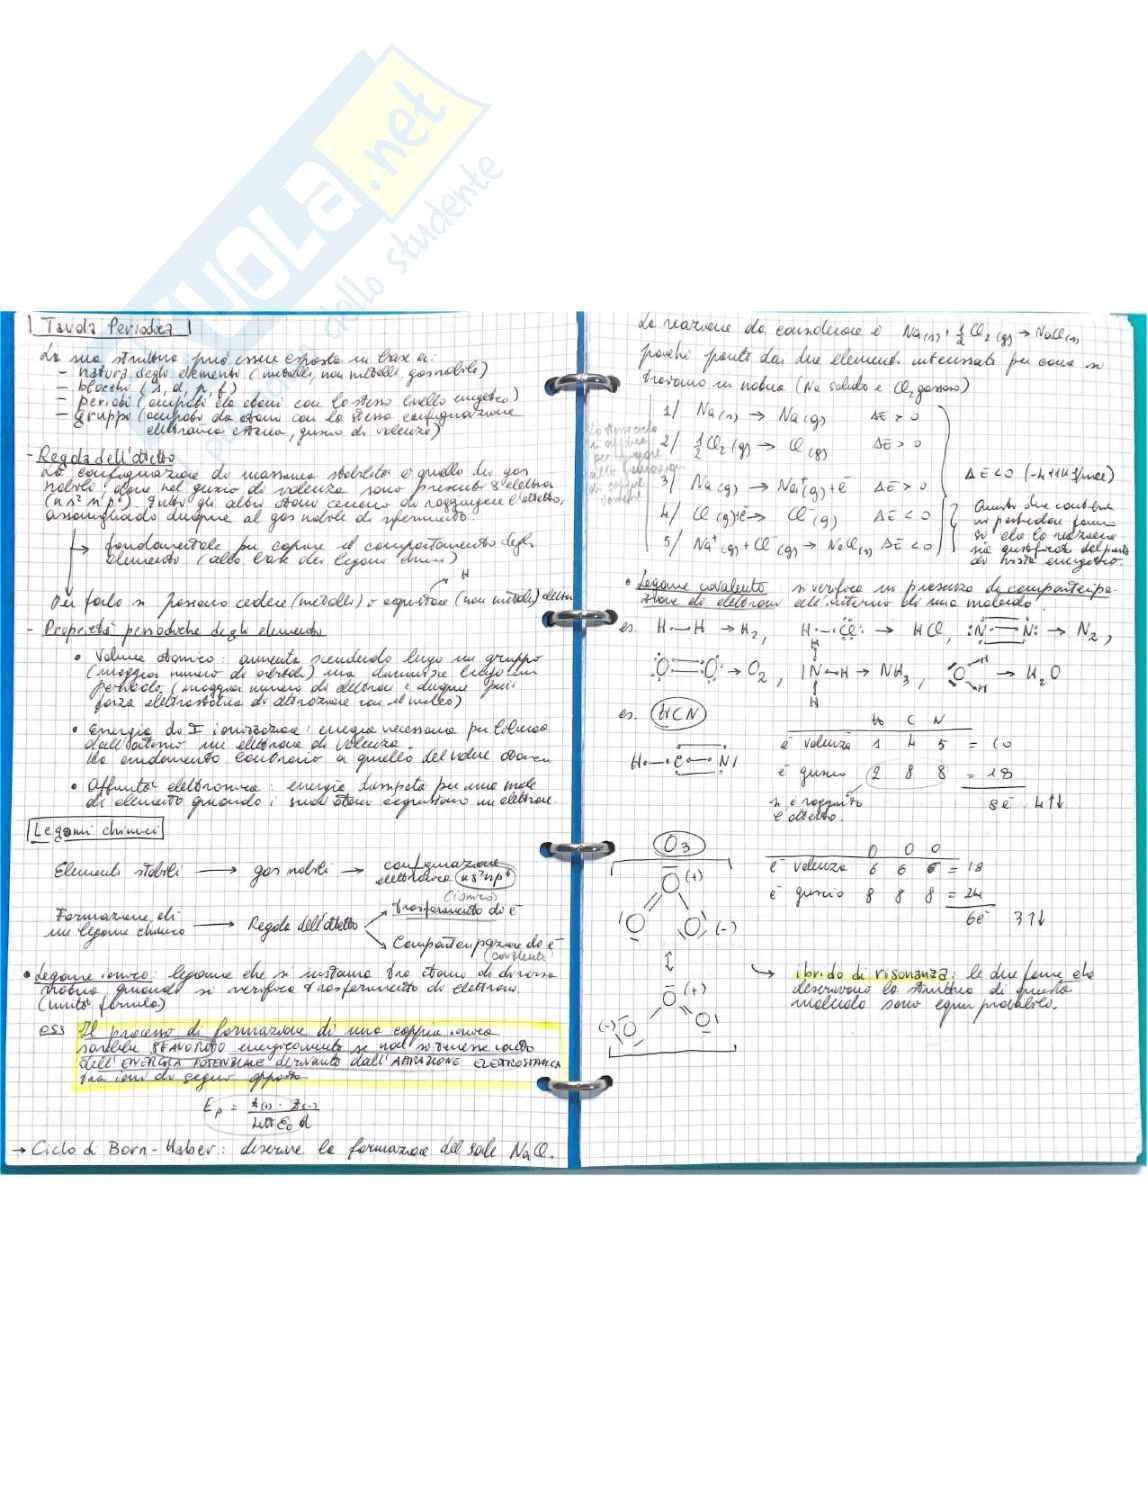 SKUOLA.net
dello studente
Tavola Periodica
La sua struttura può essere esposta in base a:
– natura degli elementi (metalli, non metalli, gas nobili)
– blocchi (s, d, p, f)
– periodi (occupati da atomi con lo stesso livello energetico)
– gruppi (occupati da atomi con la stessa configurazione
elettronica esterna, guscio di valenza)
- Regola dell'ottetto
La configurazione di massima stabilità è quella dei gas
nobili, dove nel guscio di valenza sono presenti 8 elettroni
(ns² np⁶). Tutti gli altri atomi cercano di raggiungere l'ottetto,
assomigliando dunque al gas nobile di riferimento.
→ fondamentale per capire il comportamento degli
elementi (alla base dei legami chimici)
H
Per farlo si possono cedere (metalli) o acquistare (non metalli) elettroni
- Proprietà periodiche degli elementi
• Volume atomico: aumenta scendendo lungo un gruppo
(maggior numero di orbitali) ma diminuisce lungo un
periodo (maggior numero di elettroni e dunque più
forza elettrostatica di attrazione con il nucleo)
• Energia di I ionizzazione: energia necessaria per liberare
dall'atomo un elettrone di valenza.
Ha andamento contrario a quello del volume atomico
• Affinità elettronica: energia per una mole
di elemento quando i suoi atomi acquistano un elettrone.
Legami chimici
Elementi stabili → gas nobili → configurazione
elettronica ns²np⁶
(ionico)
Formazione di
un legame chimico → Regola dell'ottetto → trasferimento di e⁻
Compartecipazione di e⁻
(covalente)
• Legame ionico: legame che si instaura tra atomi di diversa
natura quando si verifica trasferimento di elettroni.
(unità formula)
oss Il processo di formazione di una coppia ionica
sarebbe SFAVORITO energicamente se non si tenesse conto
dell'ENERGIA POTENZIALE derivante dall'ATTRAZIONE ELETTROSTATICA
tra ioni di segno opposto
Eₚ = z(+) · z(-) / 4π ε₀ d
→ Ciclo di Born-Haber: descrive la formazione del sale NaCl.
La reazione da considerare è Na(s) + ½ Cl₂ (g) → NaCl(s)
perché parte dai due elementi interessati per come si
trovano in natura (Na solido e Cl₂ gassoso)
1/ Na(s) → Na(g) ΔE > 0
2/ ½ Cl₂ (g) → Cl (g) ΔE > 0
3/ Na(g) → Na⁺(g) + e⁻ ΔE > 0
4/ Cl (g) + e⁻ → Cl⁻ (g) ΔE < 0
5/ Na⁺ (g) + Cl⁻ (g) → NaCl(s) ΔE < 0
ΔE < 0 (-411 kJ/mol)
Questi due contributi
in particolare fanno
sì che la reazione
sia favorita dal punto
di vista energetico.
• Legame covalente si verifica in presenza di compartecipa-
zione di elettroni all'interno di una molecola.
es. H — H → H₂, H — Cl → HCl, N N → N₂,
O O → O₂, H N H H → NH₃, O H H → H₂O
es. HCN
H C N
e⁻ valenza 1 4 5 = 10
e⁻ guscio 2 8 8 = 18
8e⁻ 4↑↓
si è raggiunto
l'ottetto.
H — C N
O₃
O O O
e⁻ valenza 6 6 6 = 18
e⁻ guscio 8 8 8 = 24
6e⁻ 3↑↓
O (+)
O O (-)
↕
O (+)
(-) O O
→ ibrido di risonanza: le due forme che
descrivono la struttura di questa
molecola sono equiprobabili.